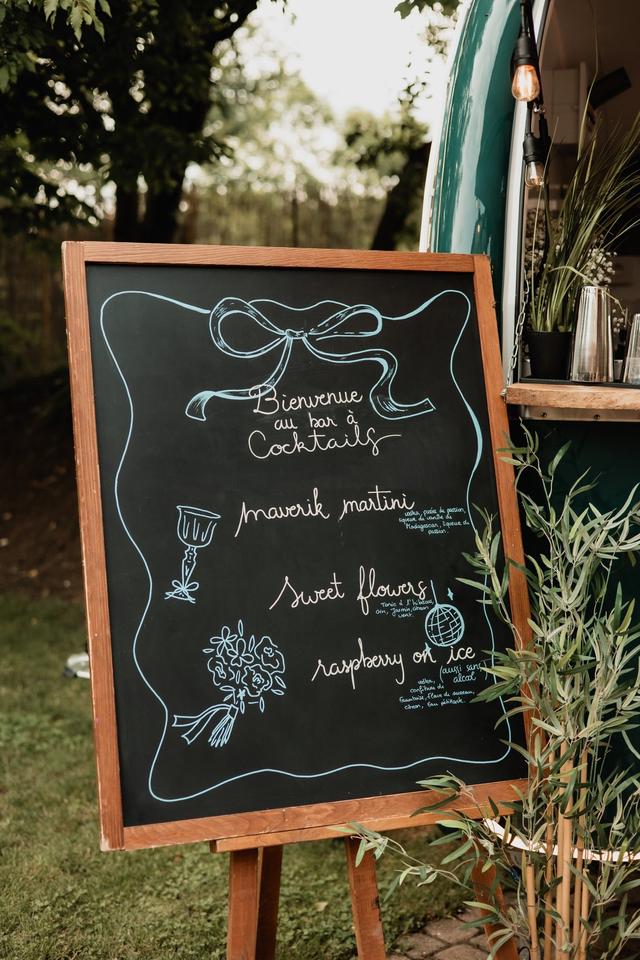 Bienvenue
au bar à
Cocktails
maverik martini
vodka, purée de passion,
liqueur de vanille de
Madagascar, liqueur de
passion.
sweet flowers
Tonic à l'hibiscus,
Gin, Jasmin, citron
vert.
raspberry on ice
(aussi sans
alcool)
vodka,
confiture de
framboise, fleur de sureau,
citron, eau pétillante.